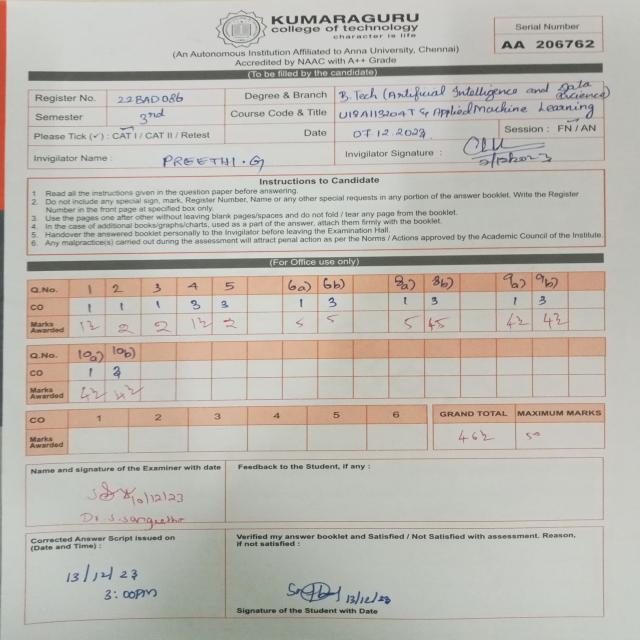 KUMARAGURU
college of technology
character is life
(An Autonomous Institution Affiliated to Anna University, Chennai)
Accredited by NAAC with A++ Grade
Serial Number
AA 206762
(To be filled by the candidate)
Register No. 22BAD086 Degree & Branch B.Tech (Artificial Intelligence and Data Science)
Semester 3rd Course Code & Title U18AI13204T & Applied Machine Learning
Please Tick (✓) : CAT I / CAT II / Retest Date 07.12.2023 Session : FN / AN
Invigilator Name : PREETHI.G Invigilator Signature :
Instructions to Candidate
1 Read all the instructions given in the question paper before answering.
2. Do not include any special sign, mark, Register Number, Name or any other special requests in any portion of the answer booklet. Write the Register
Number in the front page at specified box only.
3. Use the pages one after other without leaving blank pages/spaces and do not fold / tear any page from the booklet.
4. In the case of additional books/graphs/charts, used as a part of the answer, attach them firmly with the booklet.
5. Handover the answered booklet personally to the Invigilator before leaving the Examination Hall.
6. Any malpractice(s) carried out during the assessment will attract penal action as per the Norms / Actions approved by the Academic Council of the Institute.
(For Office use only)
Q.No. 1 2 3 4 5 6a) 6b) 8a) 8b) 9a) 9b)
CO 1 1 1 3 3 1 3 1 3 1 3
Marks Awarded 1½ 2 2 1½ 2 5 5 5 4½ 4½
Q.No. 10a) 10b)
CO 1 3
Marks Awarded 4½ 4½
CO 1 2 3 4 5 6 GRAND TOTAL MAXIMUM MARKS
Marks Awarded 46½ 50
Name and signature of the Examiner with date
Feedback to the Student, if any :
10/12/23
Dr. S. Sangeetha
Corrected Answer Script issued on
(Date and Time) :
13/12/23
3:00PM
Verified my answer booklet and Satisfied / Not Satisfied with assessment. Reason,
if not satisfied :
13/12/23
Signature of the Student with Date